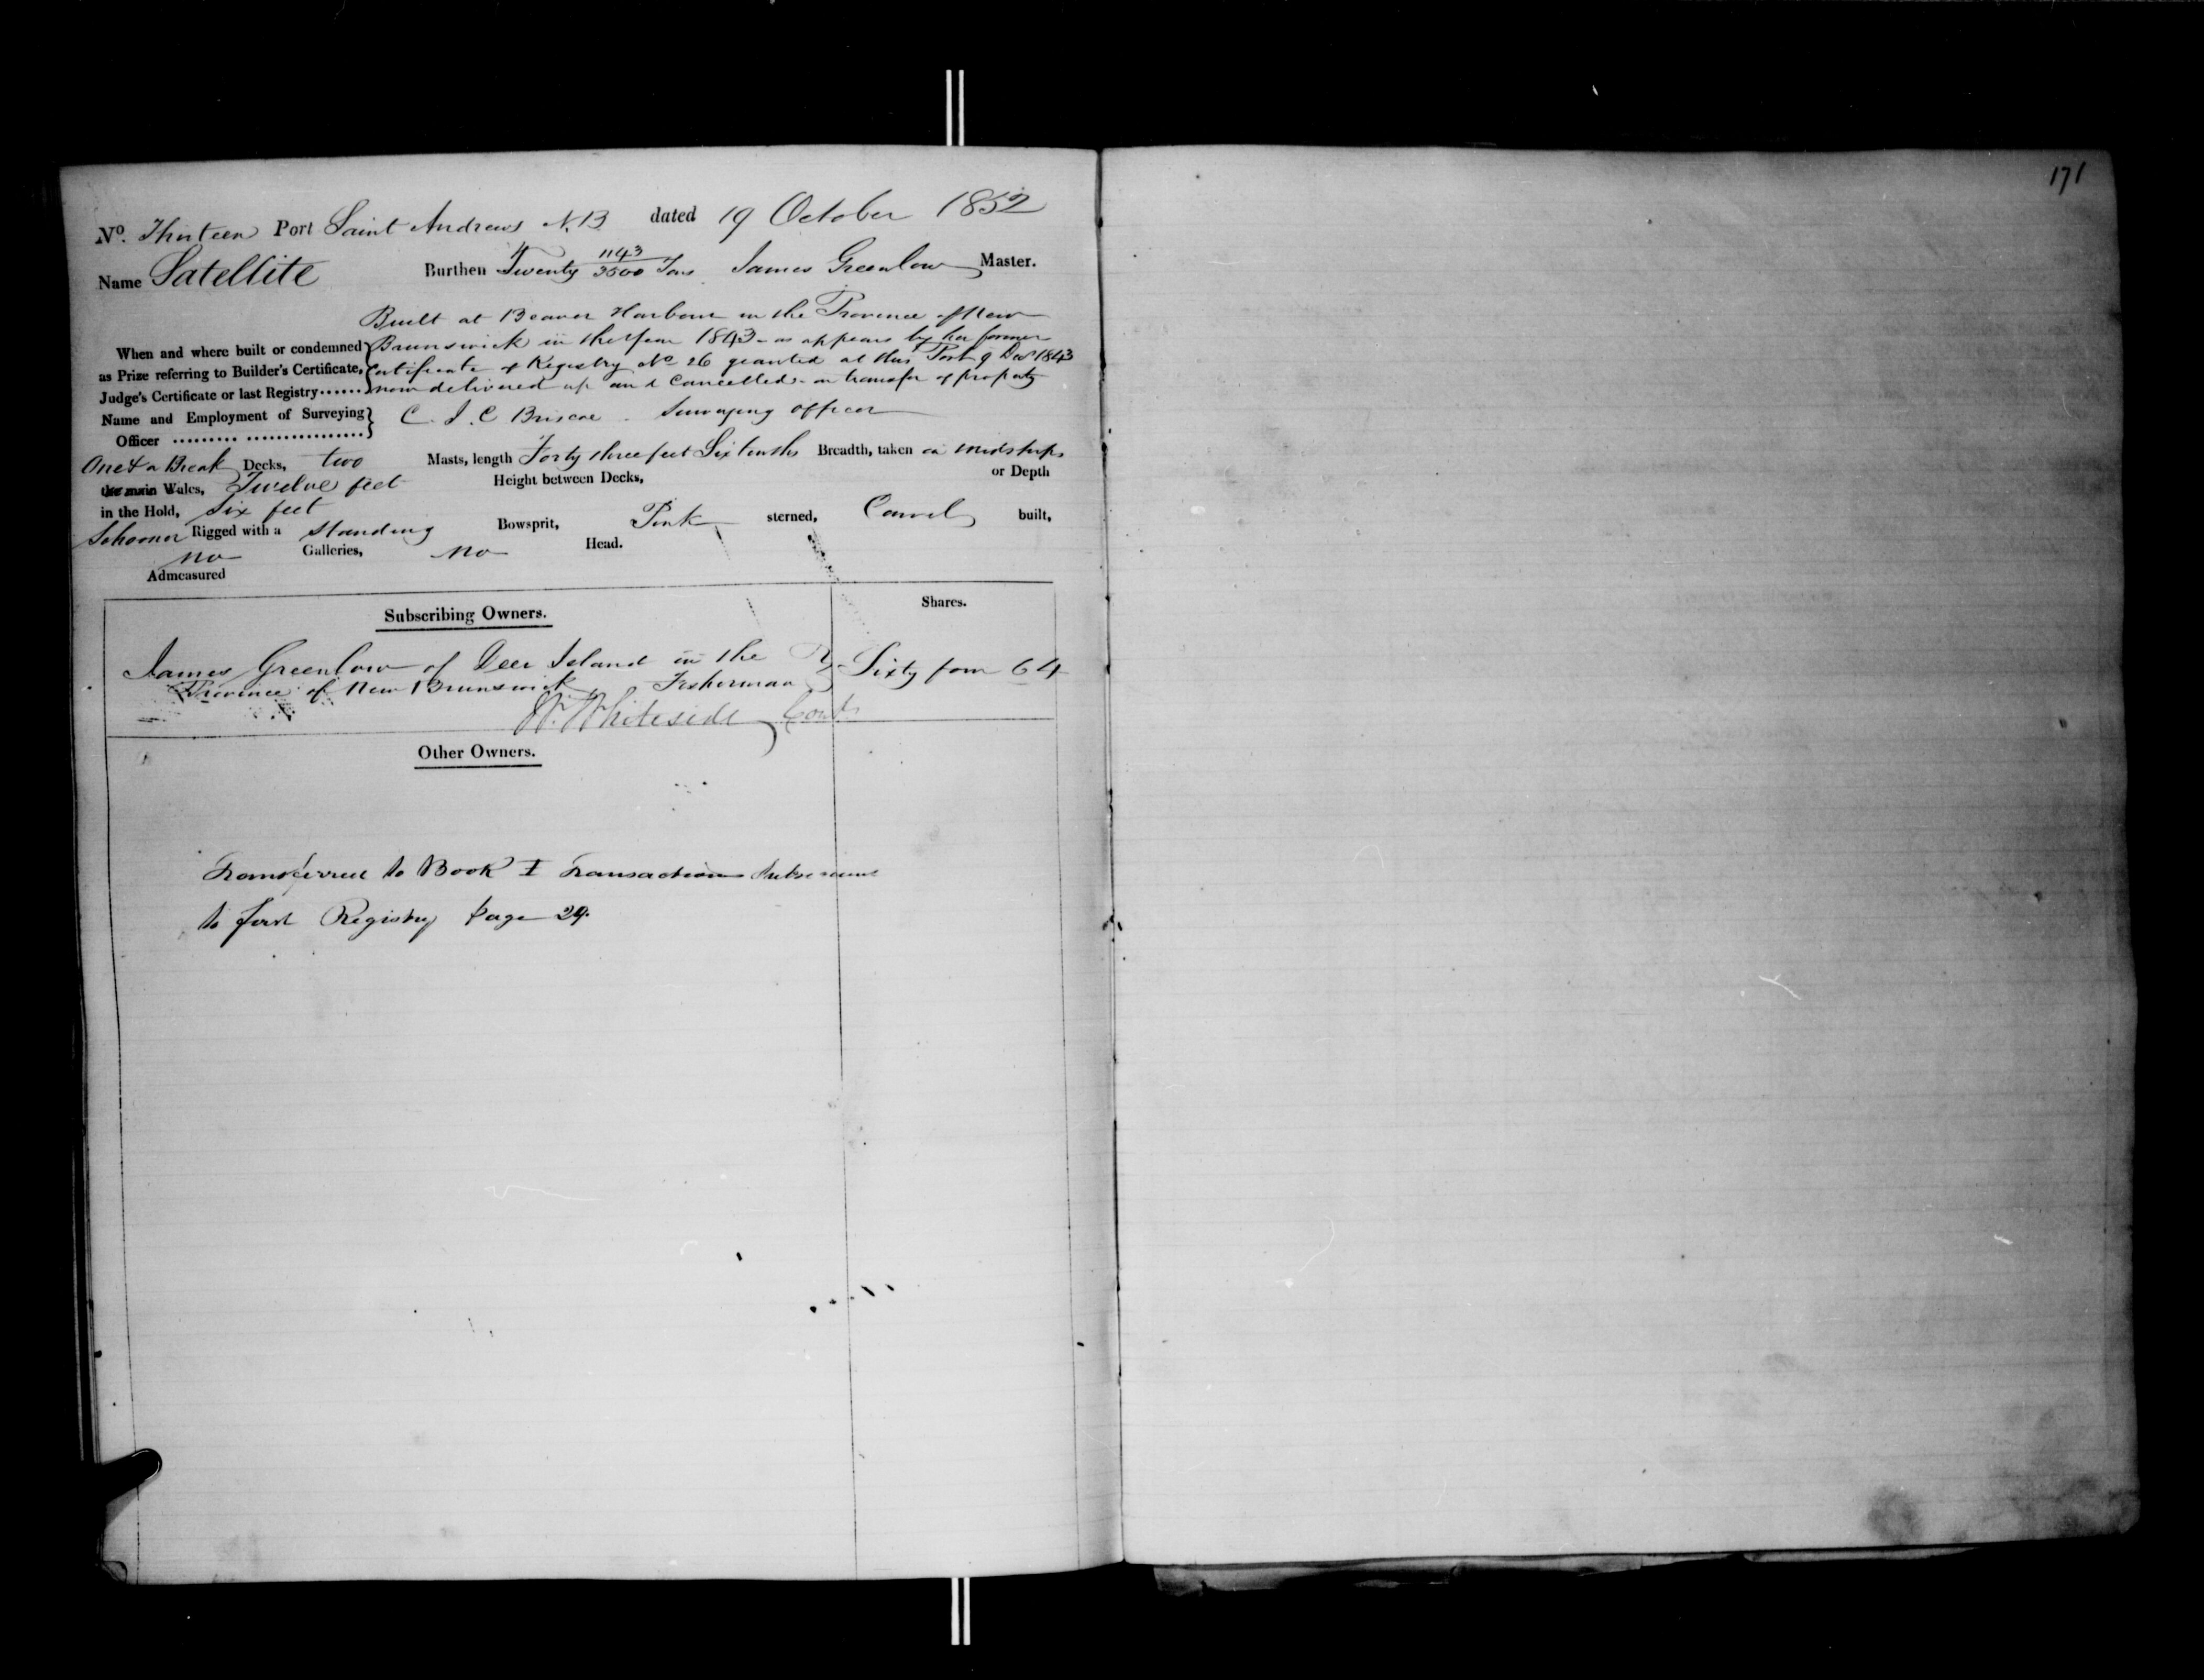 171
No. Thirteen Port Saint Andrews N.B dated 19 October 1852
Name Satellite Burthen Twenty 1143/3500 Tons James Greenlow Master.
Built at Beaver Harbour in the Province of New
When and where built or condemned Brunswick in the Year 1843 - as appears by her former
as Prize referring to Builder's Certificate, Certificate of Registry No 26 granted at this Port 9 Decr 1843
Judge's Certificate or last Registry...... now delivered up and Cancelled - on transfer of property
Name and Employment of Surveying C. J. C Briscoe Surveying officer
Officer
One & a Break Decks, two Masts, length Forty three feet Six tenths Breadth, taken on midships
the main Wales, Twelve feet Height between Decks, or Depth
in the Hold, Six feet
Schooner Rigged with a Standing Bowsprit, Pink sterned, Carvel built,
no Galleries, no Head.
Admeasured
Subscribing Owners. Shares.
James Greenlow of Deer Island in the
Province of New Brunswick, Fisherman Sixty four 64
W. Whiteside Contr
Other Owners.
Transferred to Book I Transactions Subsequent
to first Registry page 29.